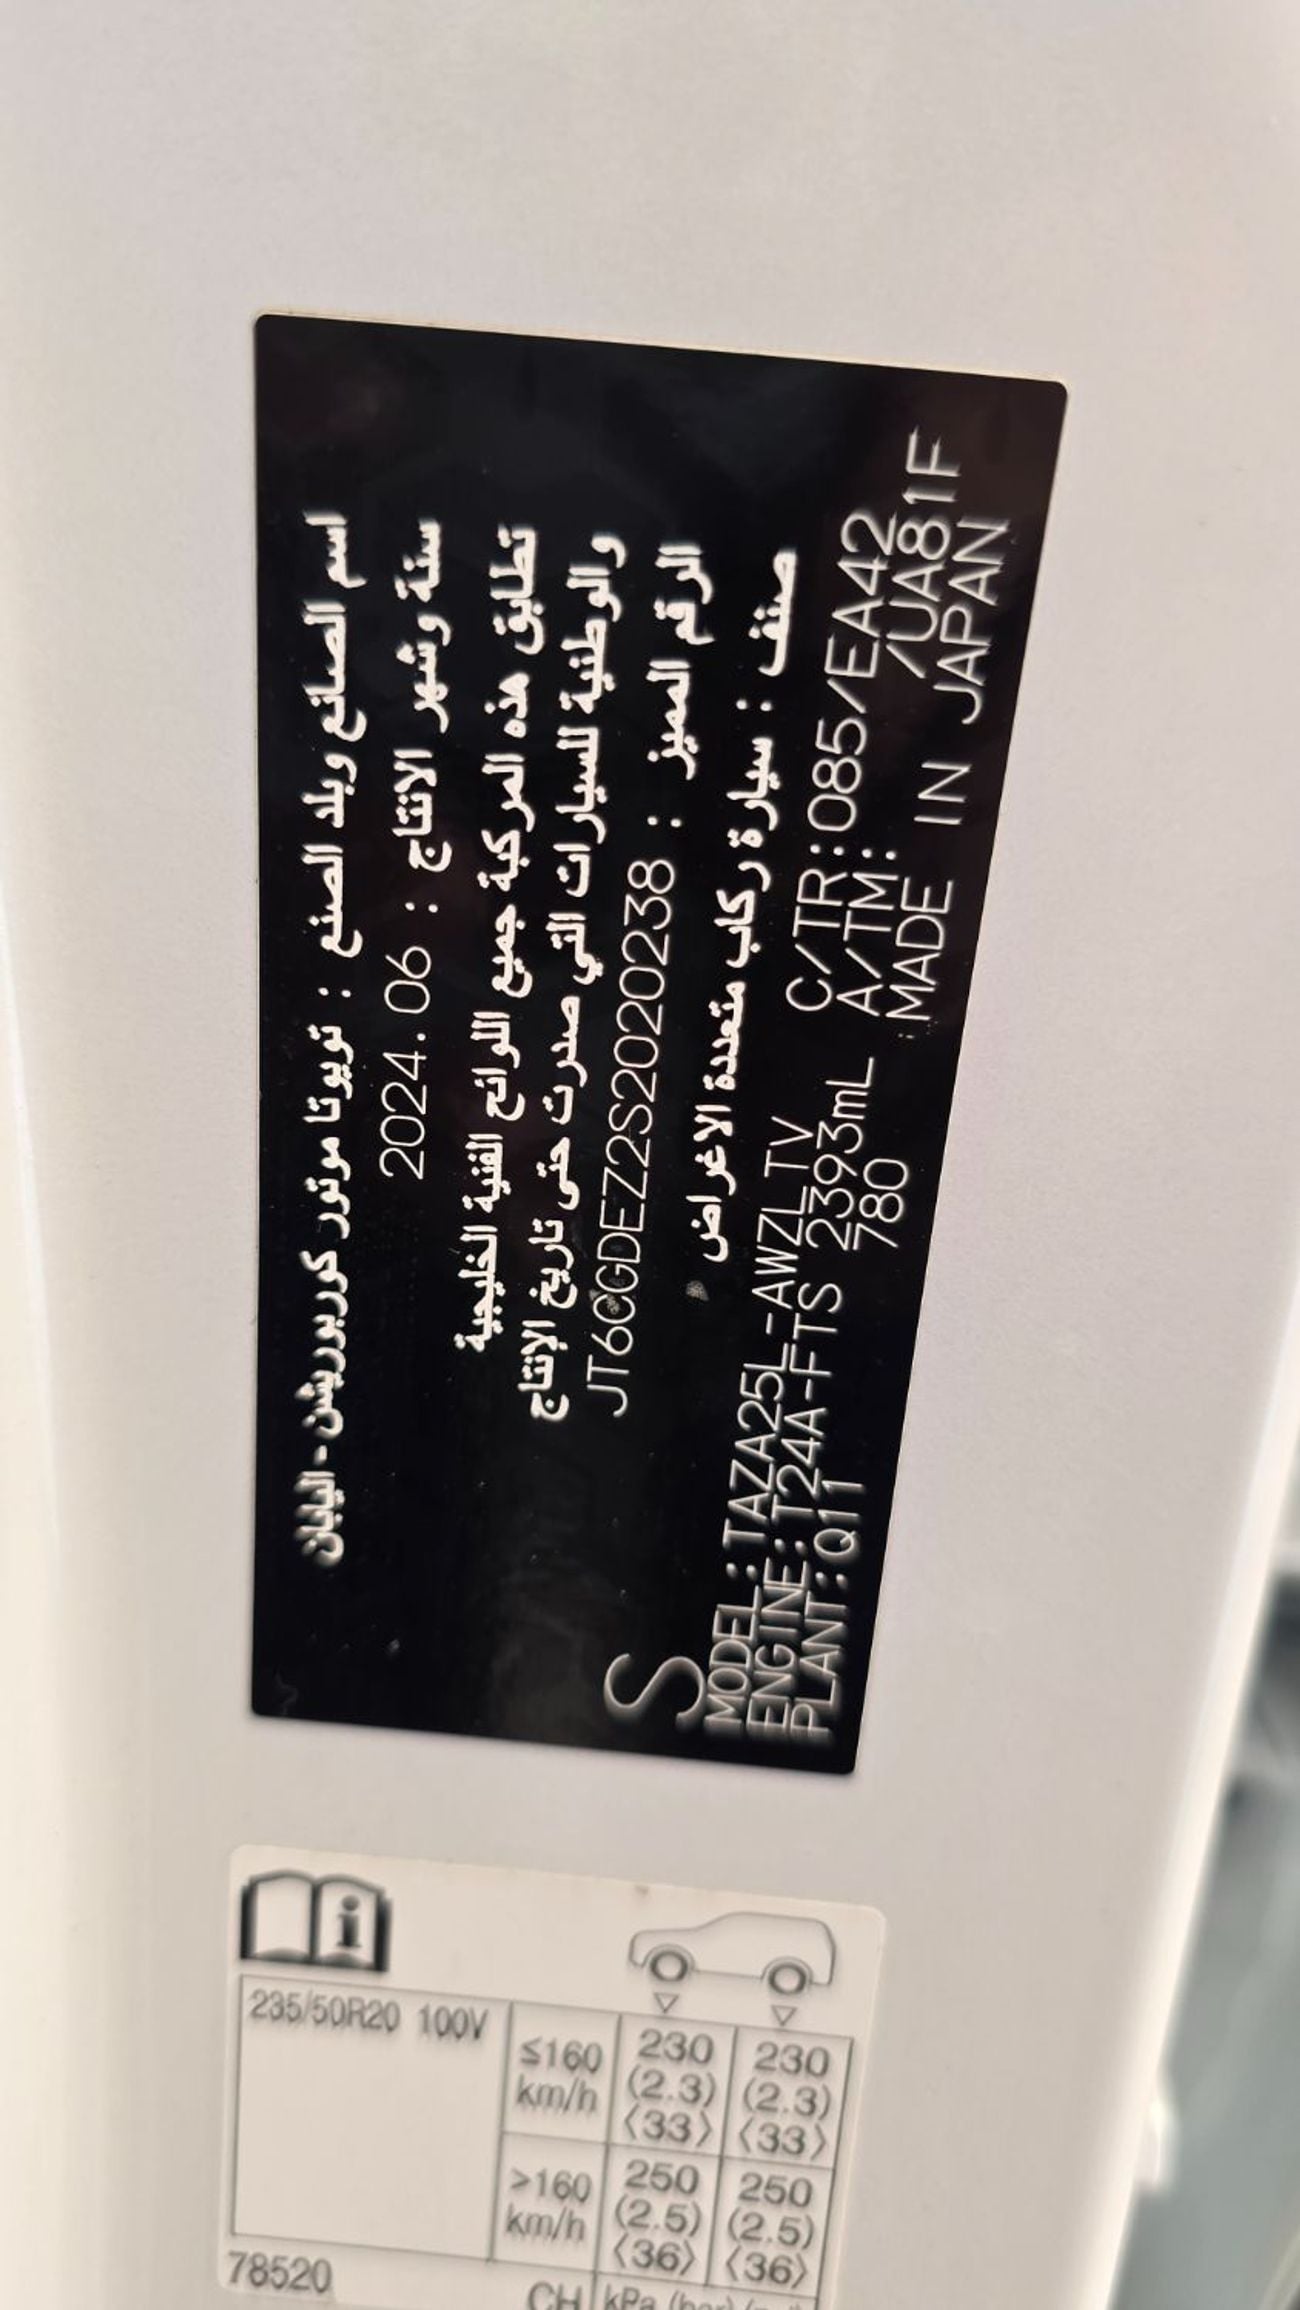 اسم الصانع وبلد الصنع : تويوتا موتور كوربوريشن - اليابان
سنة وشهر الانتاج : 2024.06
تطابق هذه المركبة جميع اللوائح الفنية الخليجية
والوطنية للسيارات التي صدرت حتى تاريخ الإنتاج
الرقم المميز : JT6CGDEZ2S2020238
صنف : سيارة ركاب متعددة الاغراض
S
MODEL:TAZA25L-AWZLTV C/TR:085/EA42
ENGINE:T24A-FTS 2393mL A/TM: /UA81F
PLANT:Q11 780 MADE IN JAPAN
i
235/50R20 100V
≤160 km/h 230 (2.3) 〈33〉 230 (2.3) 〈33〉
>160 km/h 250 (2.5) 〈36〉 250 (2.5) 〈36〉
78520 CH kPa (bar)